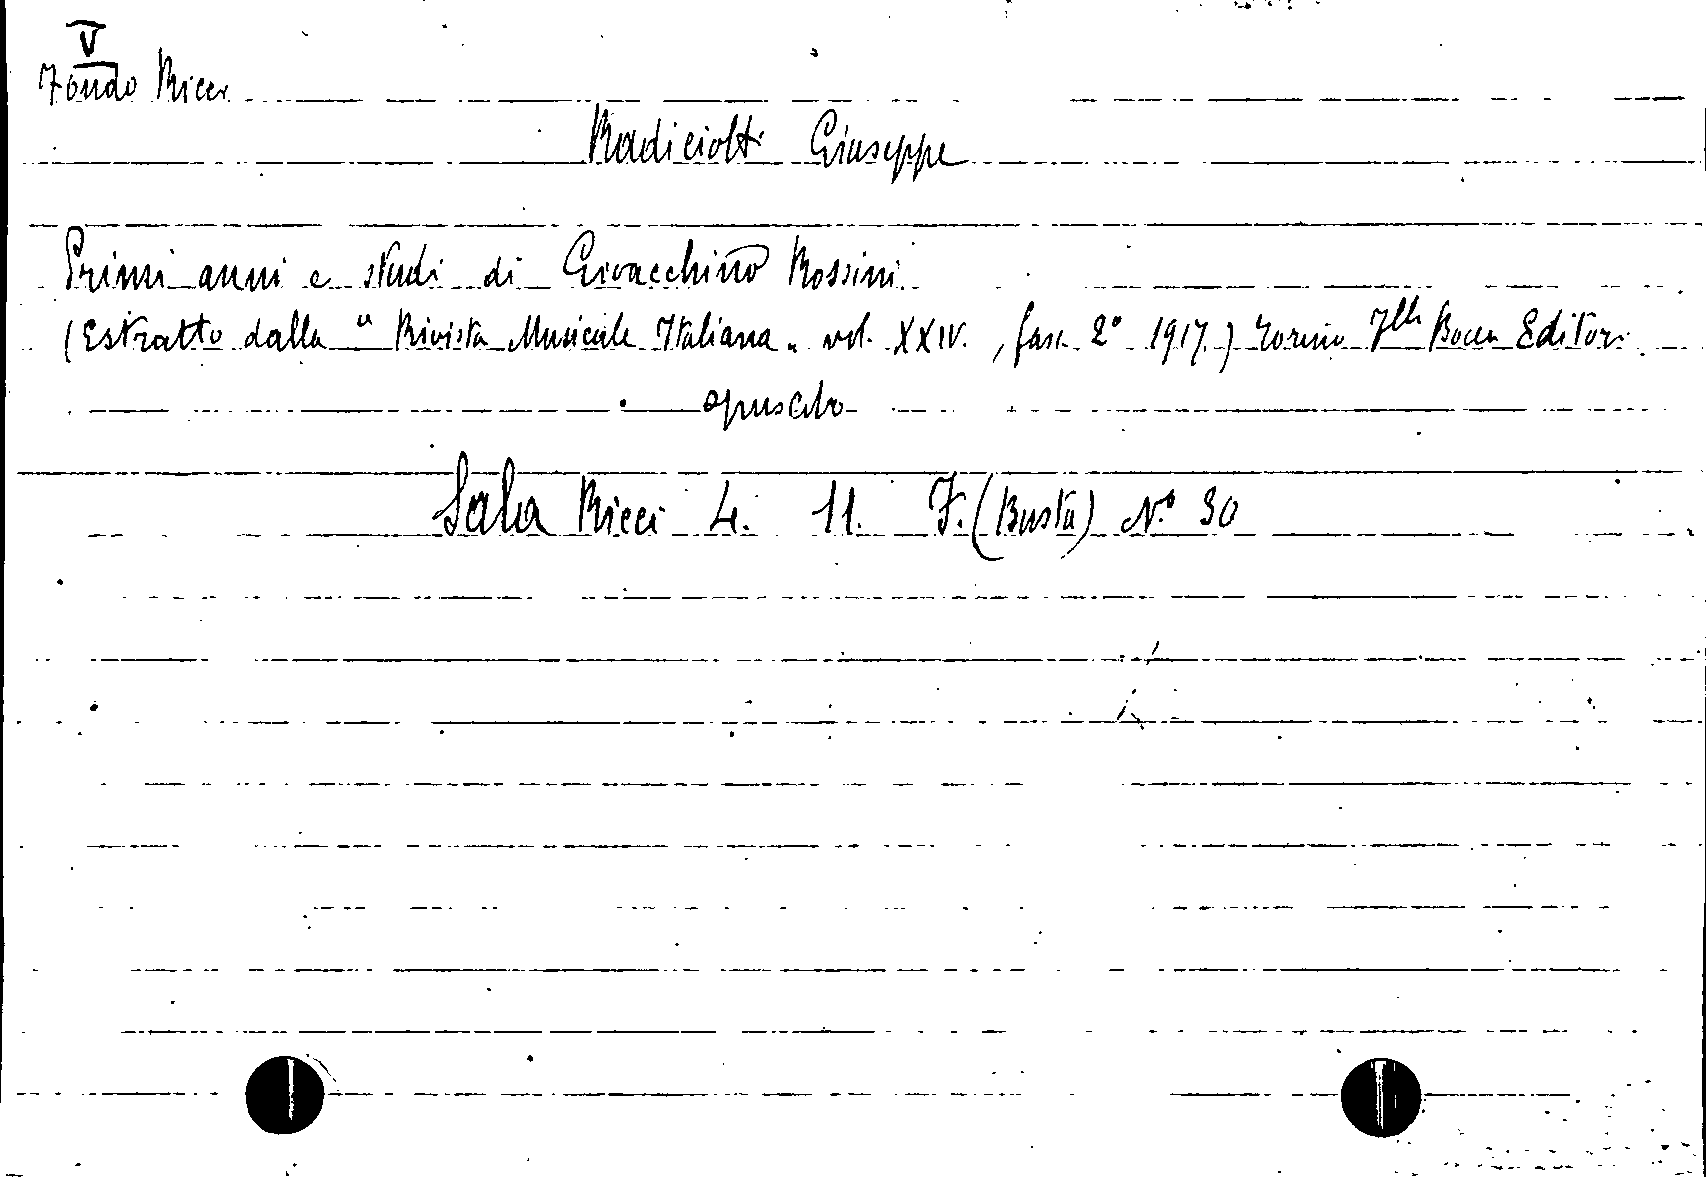 V
Fondo Ricci
Radiciotti Giuseppe
Primi anni e studi di Gioacchino Rossini
(Estratto dalla "Rivista Musicale Italiana" vol. XXIV., fasc. 2° 1917.) Torino Flli Bocca Editori
opuscolo
Sala Ricci 4. 11. F. (Busta) N.° 30